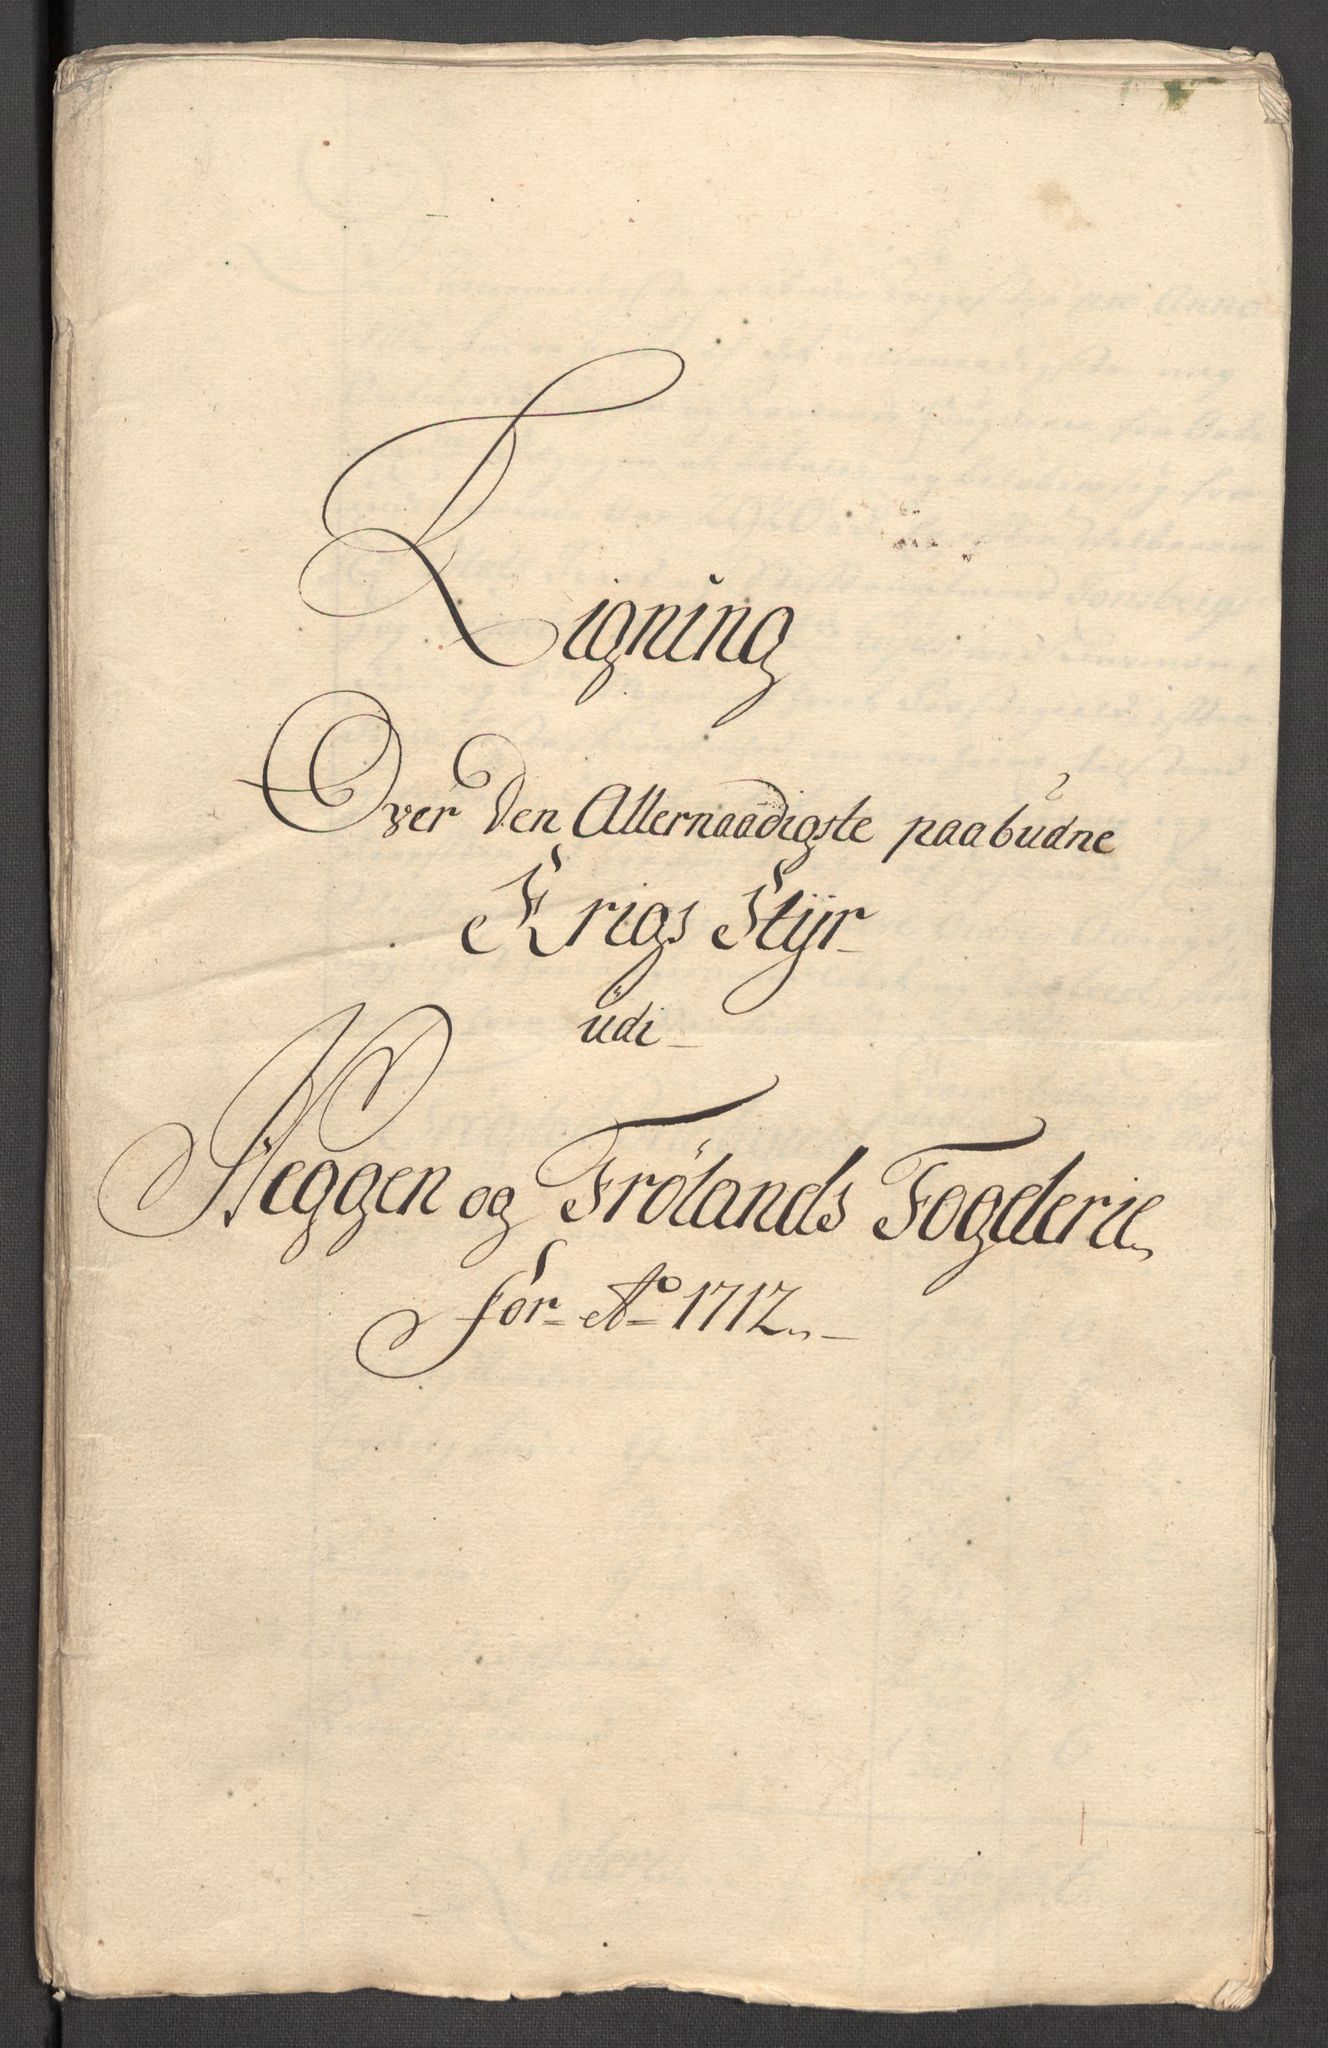 Ligning
Over den Allernaadigste paabudne
Krigs Styr
udi
Heggen og Frölands Fogderie
for Ao 1712